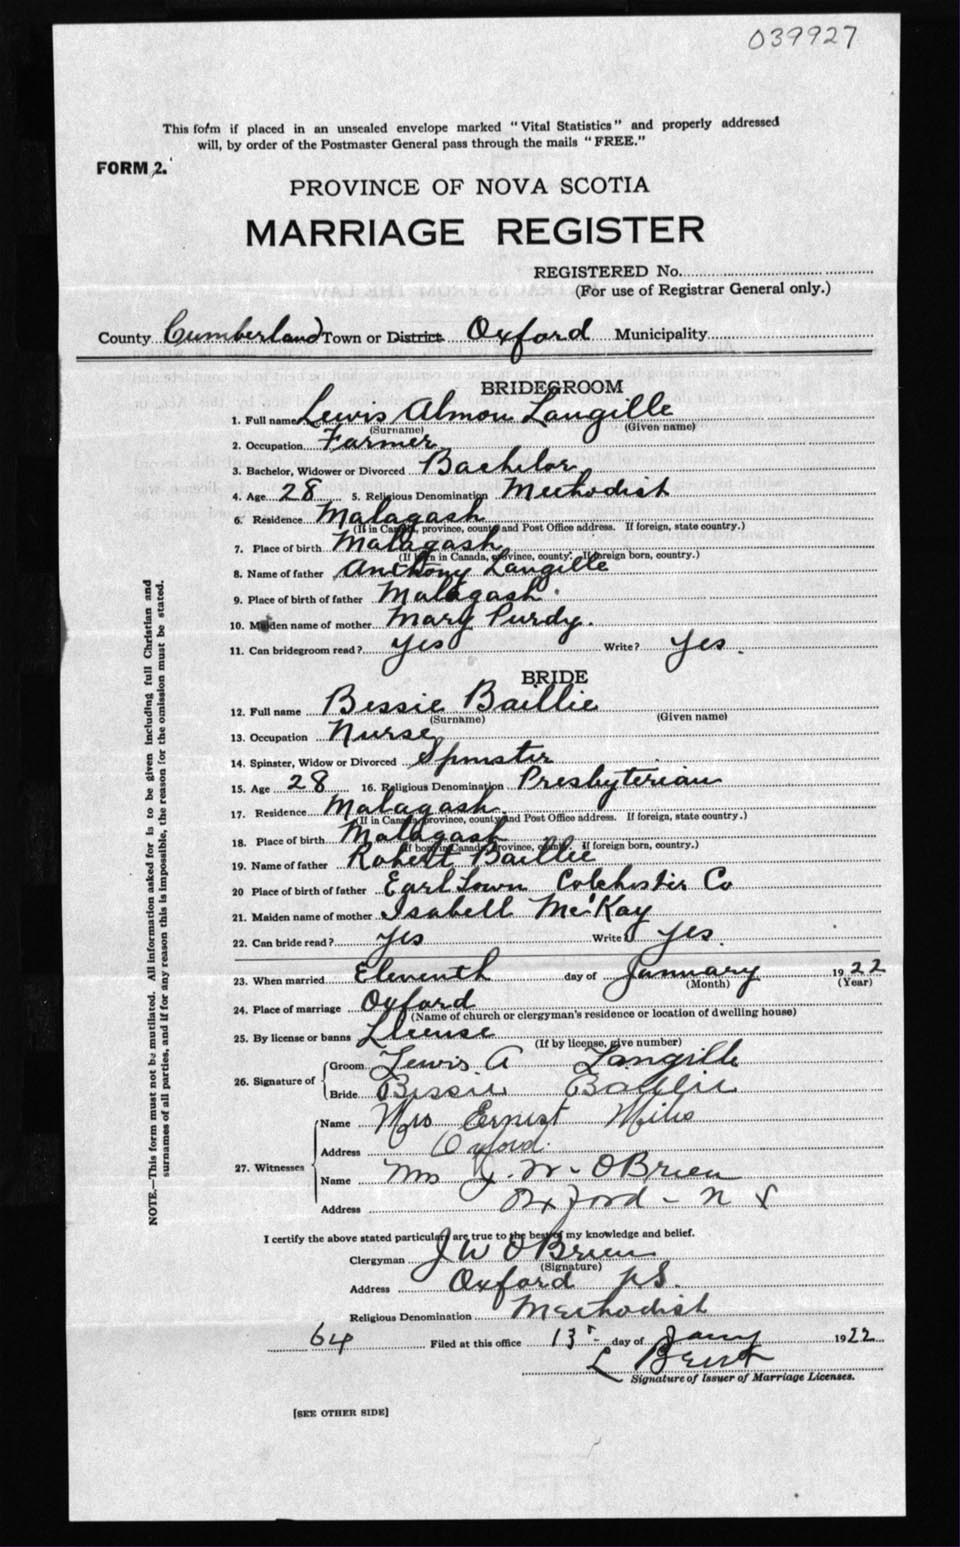 039927
This form if placed in an unsealed envelope marked "Vital Statistics" and properly addressed
will, by order of the Postmaster General pass through the mails "FREE."
FORM 2.
PROVINCE OF NOVA SCOTIA
MARRIAGE REGISTER
REGISTERED No.
(For use of Registrar General only.)
County Cumberland Town or District Oxford Municipality
BRIDEGROOM
1. Full name Lewis Almon Langille
(Surname) (Given name)
2. Occupation Farmer
3. Bachelor, Widower or Divorced Bachelor
4. Age 28 5. Religious Denomination Methodist
6. Residence Malagash
(If in Canada, province, county and Post Office address. If foreign, state country.)
7. Place of birth Malagash
(If born in Canada, province, county. If foreign born, country.)
8. Name of father Anthony Langille
9. Place of birth of father Malagash.
10. Maiden name of mother Mary Purdy.
11. Can bridegroom read? Yes Write? Yes.
BRIDE
12. Full name Bessie Baillie
(Surname) (Given name)
13. Occupation Nurse
14. Spinster, Widow or Divorced Spinster
15. Age 28 16. Religious Denomination Presbyterian
17. Residence Malagash
(If in Canada, province, county and Post Office address. If foreign, state country.)
18. Place of birth Malagash
(If born in Canada, province, county. If foreign born, country.)
19. Name of father Robert Baillie
20 Place of birth of father Earl Town Colchester Co
21. Maiden name of mother Isabell McKay
22. Can bride read? Yes Write? Yes.
23. When married Eleventh day of January 1922
(Month) (Year)
24. Place of marriage Oxford
(Name of church or clergyman's residence or location of dwelling house)
25. By license or banns License
(If by license, give number)
26. Signature of
Groom Lewis A Langille
Bride Bessie Baillie
27. Witnesses
Name Mrs Ernest
Address Oxford.
Name Mrs J. W. OBrien
Address Oxford - N S
I certify the above stated particulars are true to the best of my knowledge and belief.
Clergyman J W OBrien
(Signature)
Address Oxford N.S.
Religious Denomination Methodist
64 Filed at this office 13 day of Jany 1922
L
Signature of Issuer of Marriage Licenses.
[SEE OTHER SIDE]
NOTE.—This form must not be mutilated. All information asked for is to be given including full Christian and
surnames of all parties, and if for any reason this is impossible, the reason for the omission must be stated.